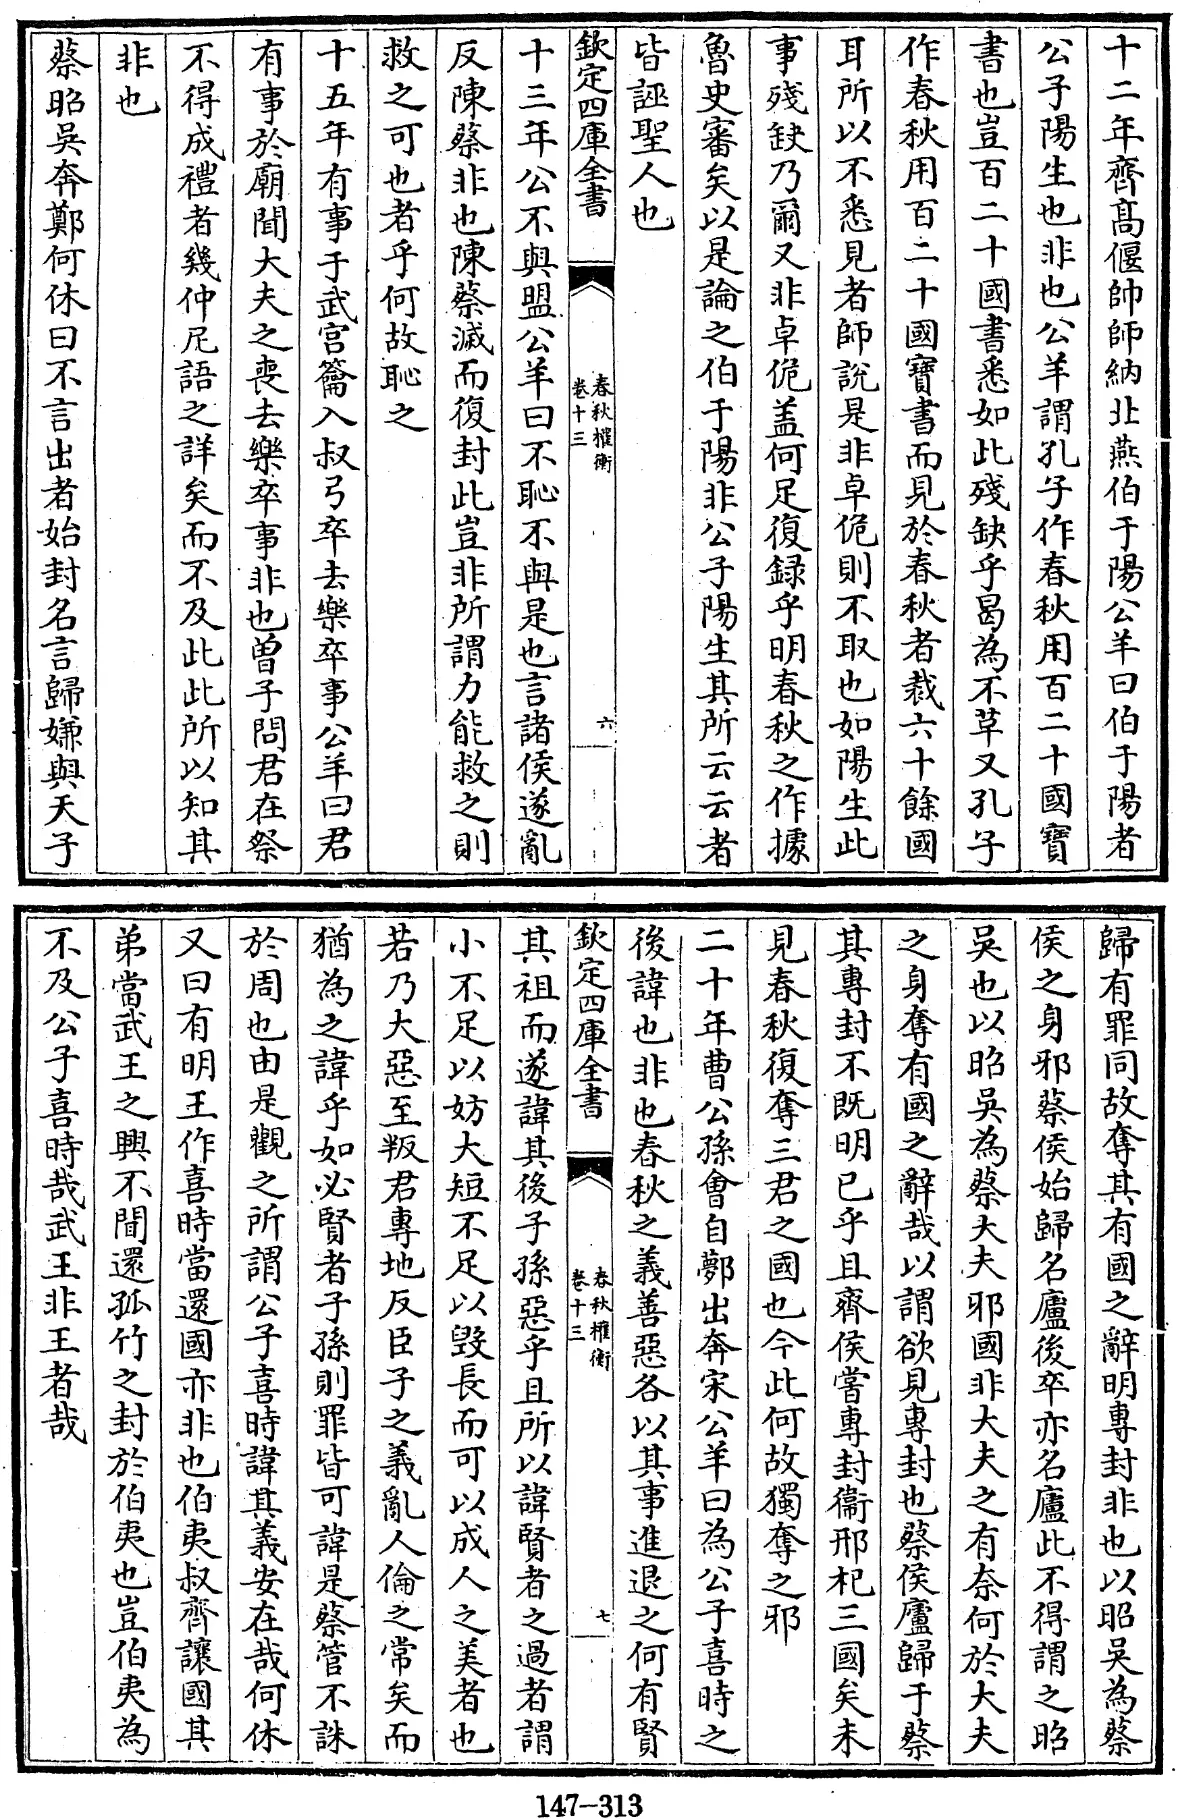 十二年齊髙偃帥師納北燕伯于陽公羊曰伯于陽者
公子陽生也非也公羊謂孔子作春秋用百二十國寶
書也豈百二十國書悉如此殘缺乎曷為不草又孔子
作春秋用百二十國寶書而見於春秋者裁六十餘國
耳所以不悉見者師說是非卓佹則不取也如陽生此
事殘缺乃爾又非卓佹盖何足復録乎明春秋之作據
魯史審矣以是論之伯于陽非公子陽生其所云云者
皆誣聖人也
欽定四庫全書
春秋權衡
卷十三
六
十三年公不與盟公羊曰不恥不與是也言諸侯遂亂
反陳蔡非也陳蔡滅而復封此豈非所謂力能救之則
救之可也者乎何故恥之
十五年有事于武宫籥入叔弓卒去樂卒事公羊曰君
有事於廟聞大夫之喪去樂卒事非也曽子問君在祭
不得成禮者幾仲尼語之詳矣而不及此此所以知其
非也
蔡昭吳奔鄭何休曰不言出者始封名言歸嫌與天子
歸有罪同故奪其有國之辭明專封非也以昭吳為蔡
侯之身邪蔡侯始歸名廬後卒亦名廬此不得謂之昭
吳也以昭吳為蔡大夫邪國非大夫之有奈何於大夫
之身奪有國之辭哉以謂欲見專封也蔡侯廬歸于蔡
其專封不既明已乎且齊侯嘗專封衞邢杞三國矣未
見春秋復奪三君之國也今此何故獨奪之邪
二十年曹公孫會自鄸出奔宋公羊曰為公子喜時之
後諱也非也春秋之義善惡各以其事進退之何有賢
欽定四庫全書
春秋權衡
卷十三
七
其祖而遂諱其後子孫惡乎且所以諱賢者之過者謂
小不足以妨大短不足以毀長而可以成人之美者也
若乃大惡至叛君專地反臣子之義亂人倫之常矣而
猶為之諱乎如必賢者子孫則罪皆可諱是蔡管不誅
於周也由是觀之所謂公子喜時諱其義安在哉何休
又曰有明王作喜時當還國亦非也伯夷叔齊讓國其
弟當武王之興不聞還孤竹之封於伯夷也豈伯夷為
不及公子喜時哉武王非王者哉
147-313